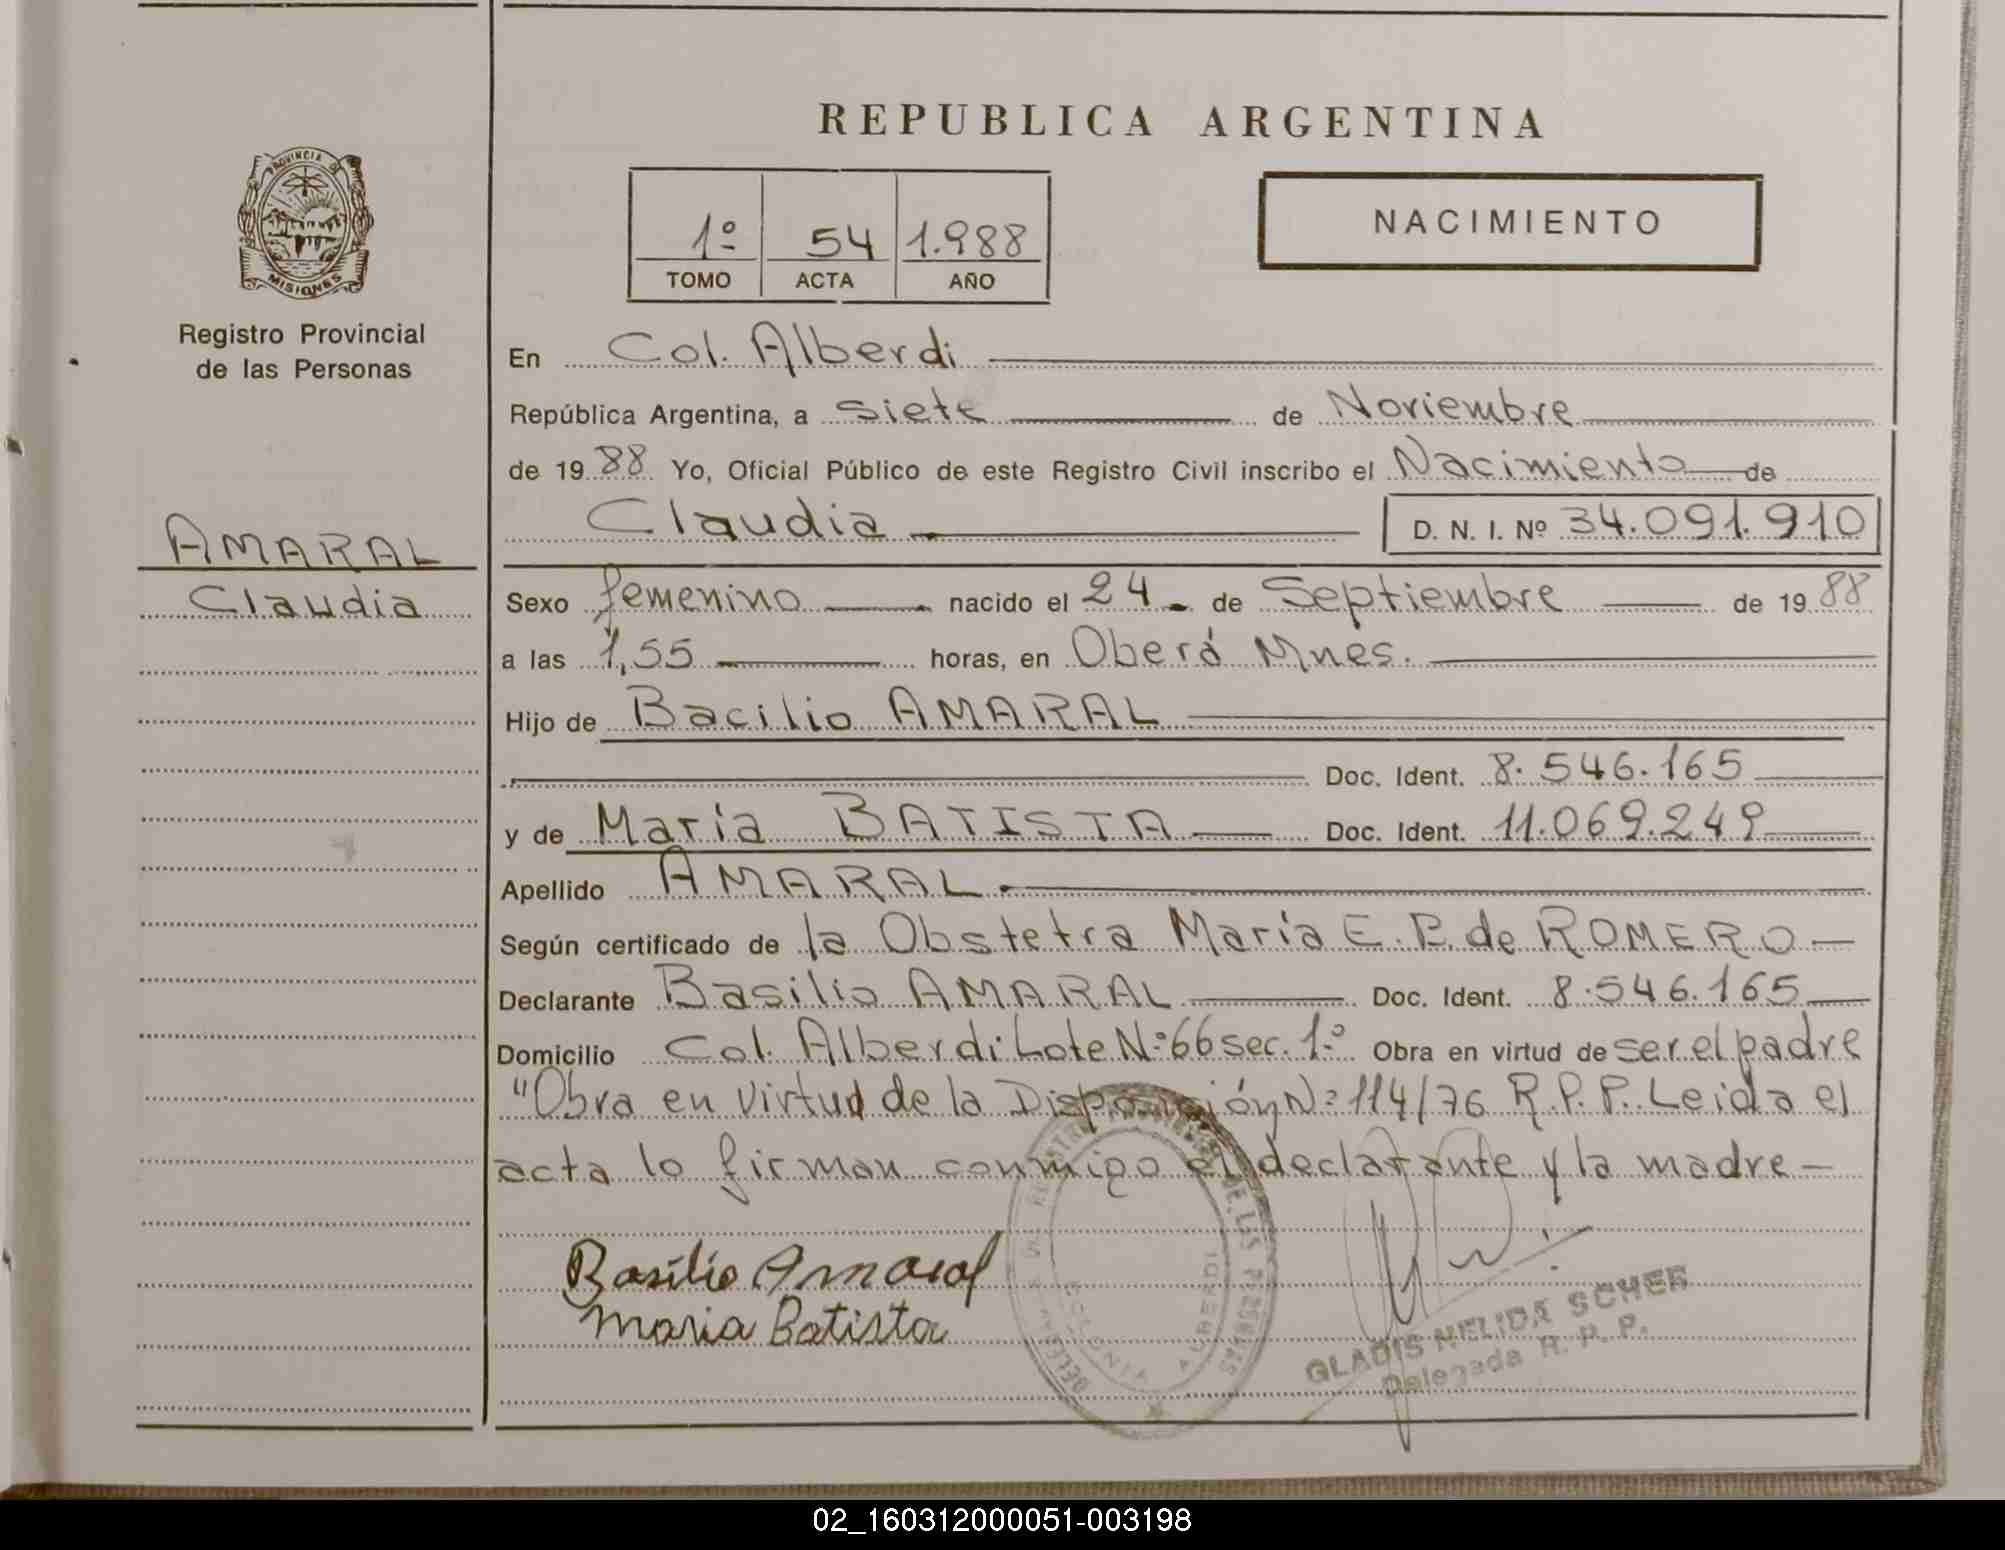 REPUBLICA ARGENTINA
PROVINCIA DE
MISIONES
Registro Provincial
de las Personas
1º 54 1.988
TOMO ACTA AÑO
NACIMIENTO
AMARAL
Claudia
En Col. Alberdi
República Argentina, a siete de Noviembre
de 19 88 Yo, Oficial Público de este Registro Civil inscribo el Nacimiento de
Claudia D. N. I. Nº 34.091.910
Sexo femenino nacido el 24 de Septiembre de 19 88
a las 1,55 horas, en Oberá Mnes.
Hijo de Bacilio AMARAL
Doc. Ident. 8.546.165
y de María BATISTA Doc. Ident. 11.069.249
Apellido AMARAL.
Según certificado de la Obstetra María E. P. de ROMERO
Declarante Basilio AMARAL Doc. Ident. 8.546.165
Domicilio Col. Alberdi Lote Nº 66 sec. 1º Obra en virtud de ser el padre
"Obra en virtud de la Disposición Nº 114/76 R.P.P. Leida el
acta lo firman conmigo el declarante y la madre
Basilio Amaral
Maria Batista
COLONIA ALBERDI
DE LAS PERSONAS
GLADIS NELIDA SCHER
Delegada R. P. P.
02_160312000051-003198